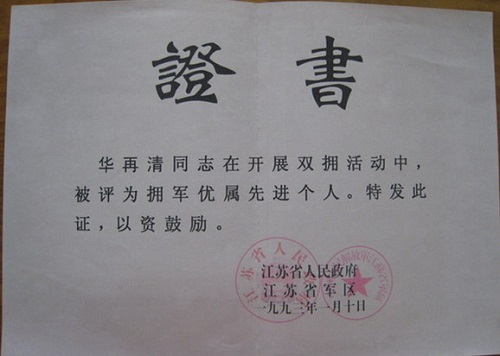 證書
华再清同志在开展双拥活动中，
被评为拥军优属先进个人。特发此
证，以资鼓励。
江苏省人民政府
江苏省军区
一九九三年一月十日